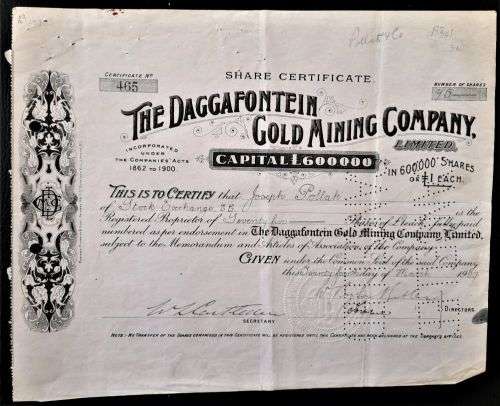 SHARE CERTIFICATE
CERTIFICATE No
465
NUMBER OF SHARES
THE DAGGAFONTEIN
GOLD MINING COMPANY,
LIMITED.
INCORPORATED
UNDER
THE COMPANIES' ACTS
1862 TO 1900.
CAPITAL £600000
IN 600,000 SHARES
OF £1 EACH.
THIS IS TO CERTIFY that Joseph Pollak
of Stock Exchange is the
Registered Proprietor of Seventy five Shares of £1 each, fully paid
numbered as per endorsement in The Daggafontein Gold Mining Company, Limited,
subject to the Memorandum and Articles of Association of the Company.
GIVEN under the Common Seal of the said Company
this day of March
SECRETARY
DIRECTORS
NOTE: NO TRANSFER OF THE SHARES COMPRISED IN THIS CERTIFICATE WILL BE REGISTERED UNTIL THIS CERTIFICATE HAS BEEN DELIVERED AT THE COMPANY'S OFFICES.